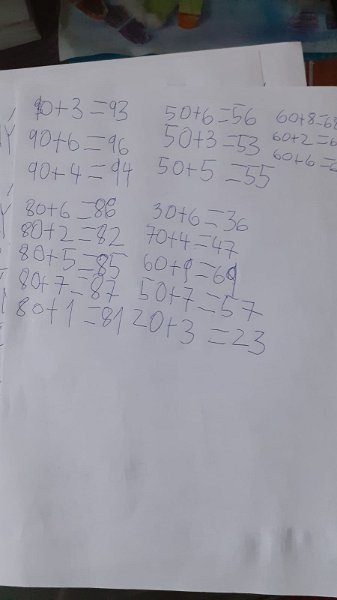 90+3=93 50+6=56 60+8=68
90+6=96 50+3=53 60+2=6
90+4=94 50+5=55 60+6=6
80+6=86 30+6=36
80+2=82 70+4=47
80+5=85 60+9=69
80+7=87 50+7=57
80+1=81 20+3=23